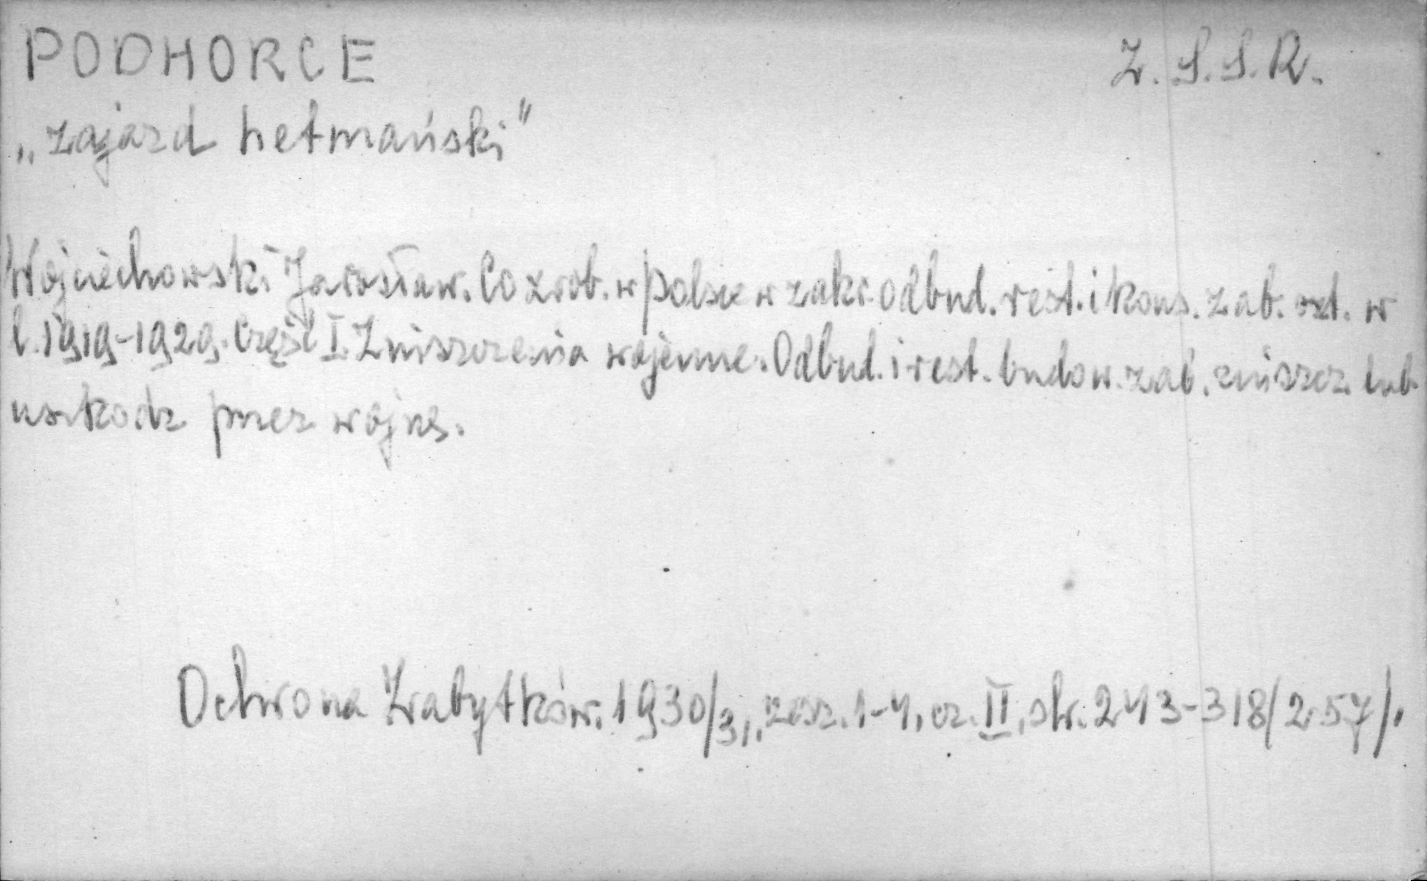 PODHORCE Z.S.S.R.
„zajazd hetmański"
Wojciechowski Jarosław. Co zrob. w Polsce w zakr. odbud. rest. i kons. zab. w
l. 1919-1929. Część I. Zniszczenia wojenne. Odbud. i rest. budow. zab. zniszcz. lub
uszkodz przez wojnę.
Ochrona Zabytków. 1930/31, zesz. 1-4, cz. II, str. 243-318/257/.